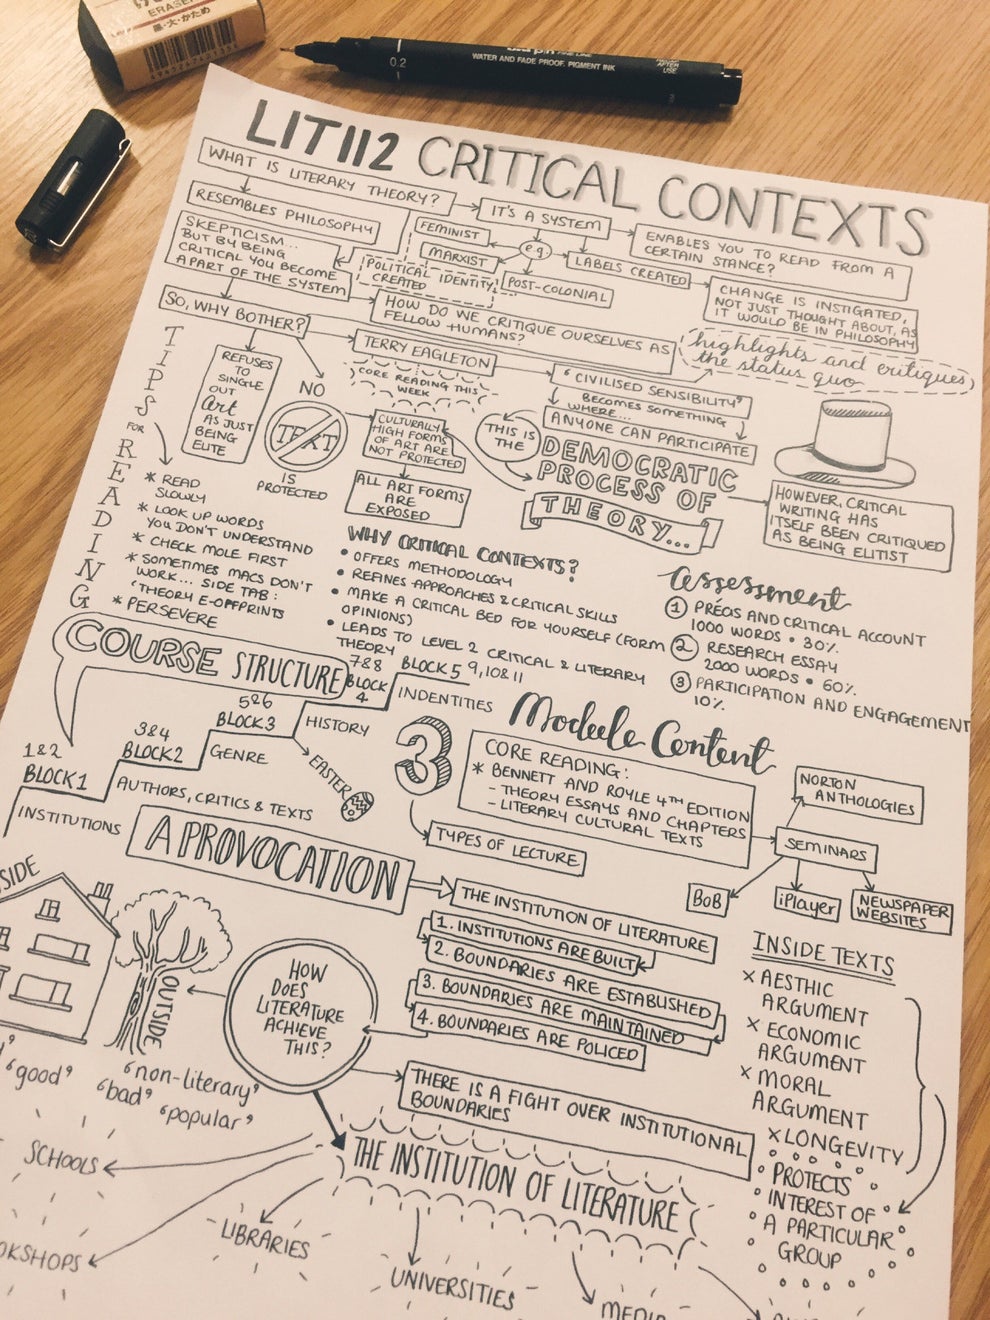 ERASER
墨・大・かため
0.2
WATER AND FADE PROOF. PIGMENT INK
LIT112 CRITICAL CONTEXTS
WHAT IS LITERARY THEORY?
IT'S A SYSTEM
ENABLES YOU TO READ FROM A
CERTAIN STANCE?
RESEMBLES PHILOSOPHY
FEMINIST
e.g
MARXIST
LABELS CREATED
POST-COLONIAL
POLITICAL IDENTITY
CREATED
SKEPTICISM...
BUT BY BEING
CRITICAL YOU BECOME
A PART OF THE SYSTEM
CHANGE IS INSTIGATED,
NOT JUST THOUGHT ABOUT, AS
IT WOULD BE IN PHILOSOPHY
SO, WHY BOTHER?
HOW DO WE CRITIQUE OURSELVES AS
FELLOW HUMANS?
highlights and critiques
the status quo
TERRY EAGLETON
CORE READING THIS
WEEK
'CIVILISED SENSIBILITY'
BECOMES SOMETHING
WHERE...
ANYONE CAN PARTICIPATE
REFUSES
TO
SINGLE
OUT
Art
AS JUST
BEING
ELITE
NO
TEXT
IS
PROTECTED
CULTURALLY
HIGH FORMS
OF ART ARE
NOT PROTECTED
ALL ART FORMS
ARE
EXPOSED
THIS IS
THE
DEMOCRATIC
PROCESS OF
THEORY...
HOWEVER, CRITICAL
WRITING HAS
ITSELF BEEN CRITIQUED
AS BEING ELITIST
TIPS
FOR
READING
* READ
SLOWLY
* LOOK UP WORDS
YOU DON'T UNDERSTAND
* CHECK MOLE FIRST
* SOMETIMES MACS DON'T
WORK... SIDE TAB:
'THEORY E-OFFPRINTS
* PERSEVERE
WHY CRITICAL CONTEXTS?
• OFFERS METHODOLOGY
• REFINES APPROACHES & CRITICAL SKILLS
• MAKE A CRITICAL BED FOR YOURSELF (FORM
OPINIONS)
• LEADS TO LEVEL 2 CRITICAL & LITERARY
THEORY
Assessment
1 PRÉCIS AND CRITICAL ACCOUNT
1000 WORDS • 30%
2 RESEARCH ESSAY
2000 WORDS • 60%
3 PARTICIPATION AND ENGAGEMENT
10%
COURSE STRUCTURE
1&2
BLOCK 1
INSTITUTIONS
3&4
BLOCK 2
AUTHORS, CRITICS & TEXTS
5&6
BLOCK 3
GENRE
7&8
BLOCK
4
HISTORY
BLOCK 5 9, 10 & 11
INDENTITIES
EASTER
3
Module Content
CORE READING:
* BENNETT AND ROYLE 4TH EDITION
- THEORY ESSAYS AND CHAPTERS
- LITERARY CULTURAL TEXTS
TYPES OF LECTURE
NORTON
ANTHOLOGIES
SEMINARS
BoB
iPlayer
NEWSPAPER
WEBSITES
A PROVOCATION
THE INSTITUTION OF LITERATURE
1. INSTITUTIONS ARE BUILT
2. BOUNDARIES ARE ESTABLISHED
3. BOUNDARIES ARE MAINTAINED
4. BOUNDARIES ARE POLICED
HOW
DOES
LITERATURE
ACHIEVE
THIS?
THERE IS A FIGHT OVER INSTITUTIONAL
BOUNDARIES
OUTSIDE
'good'
'non-literary'
'bad'
'popular'
INSIDE TEXTS
x AESTHIC
ARGUMENT
x ECONOMIC
ARGUMENT
x MORAL
ARGUMENT
x LONGEVITY
PROTECTS
INTEREST OF
A PARTICULAR
GROUP
THE INSTITUTION OF LITERATURE
SCHOOLS
LIBRARIES
UNIVERSITIES